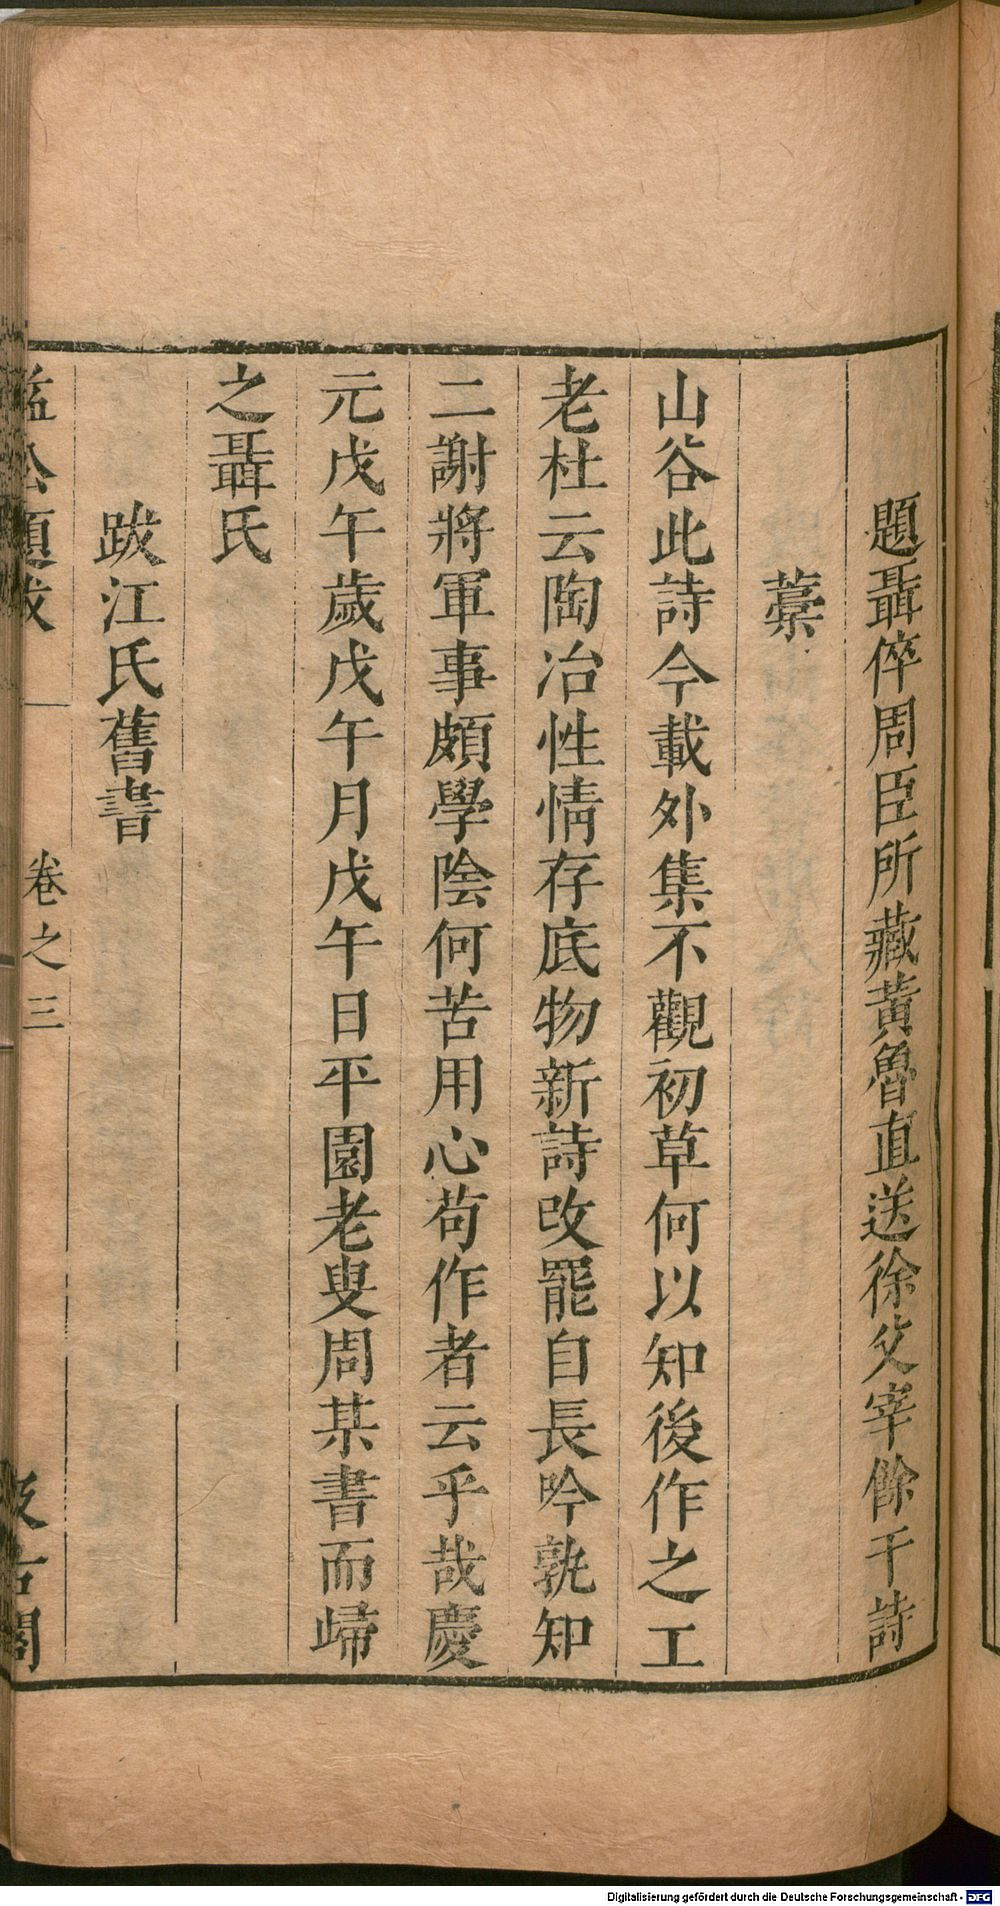 題聶倅周臣所藏黃魯直送徐父宰餘干詩
藁
山谷此詩今載外集不觀初草何以知後作之工
老杜云陶冶性情存底物新詩改罷自長吟孰知
二謝將軍事頗學陰何苦用心苟作者云乎哉慶
元戊午歲戊午月戊午日平園老叟周某書而歸
之聶氏
跋江氏舊書
益公題跋 卷之三 汲古閣
Digitalisierung gefördert durch die Deutsche Forschungsgemeinschaft - DFG